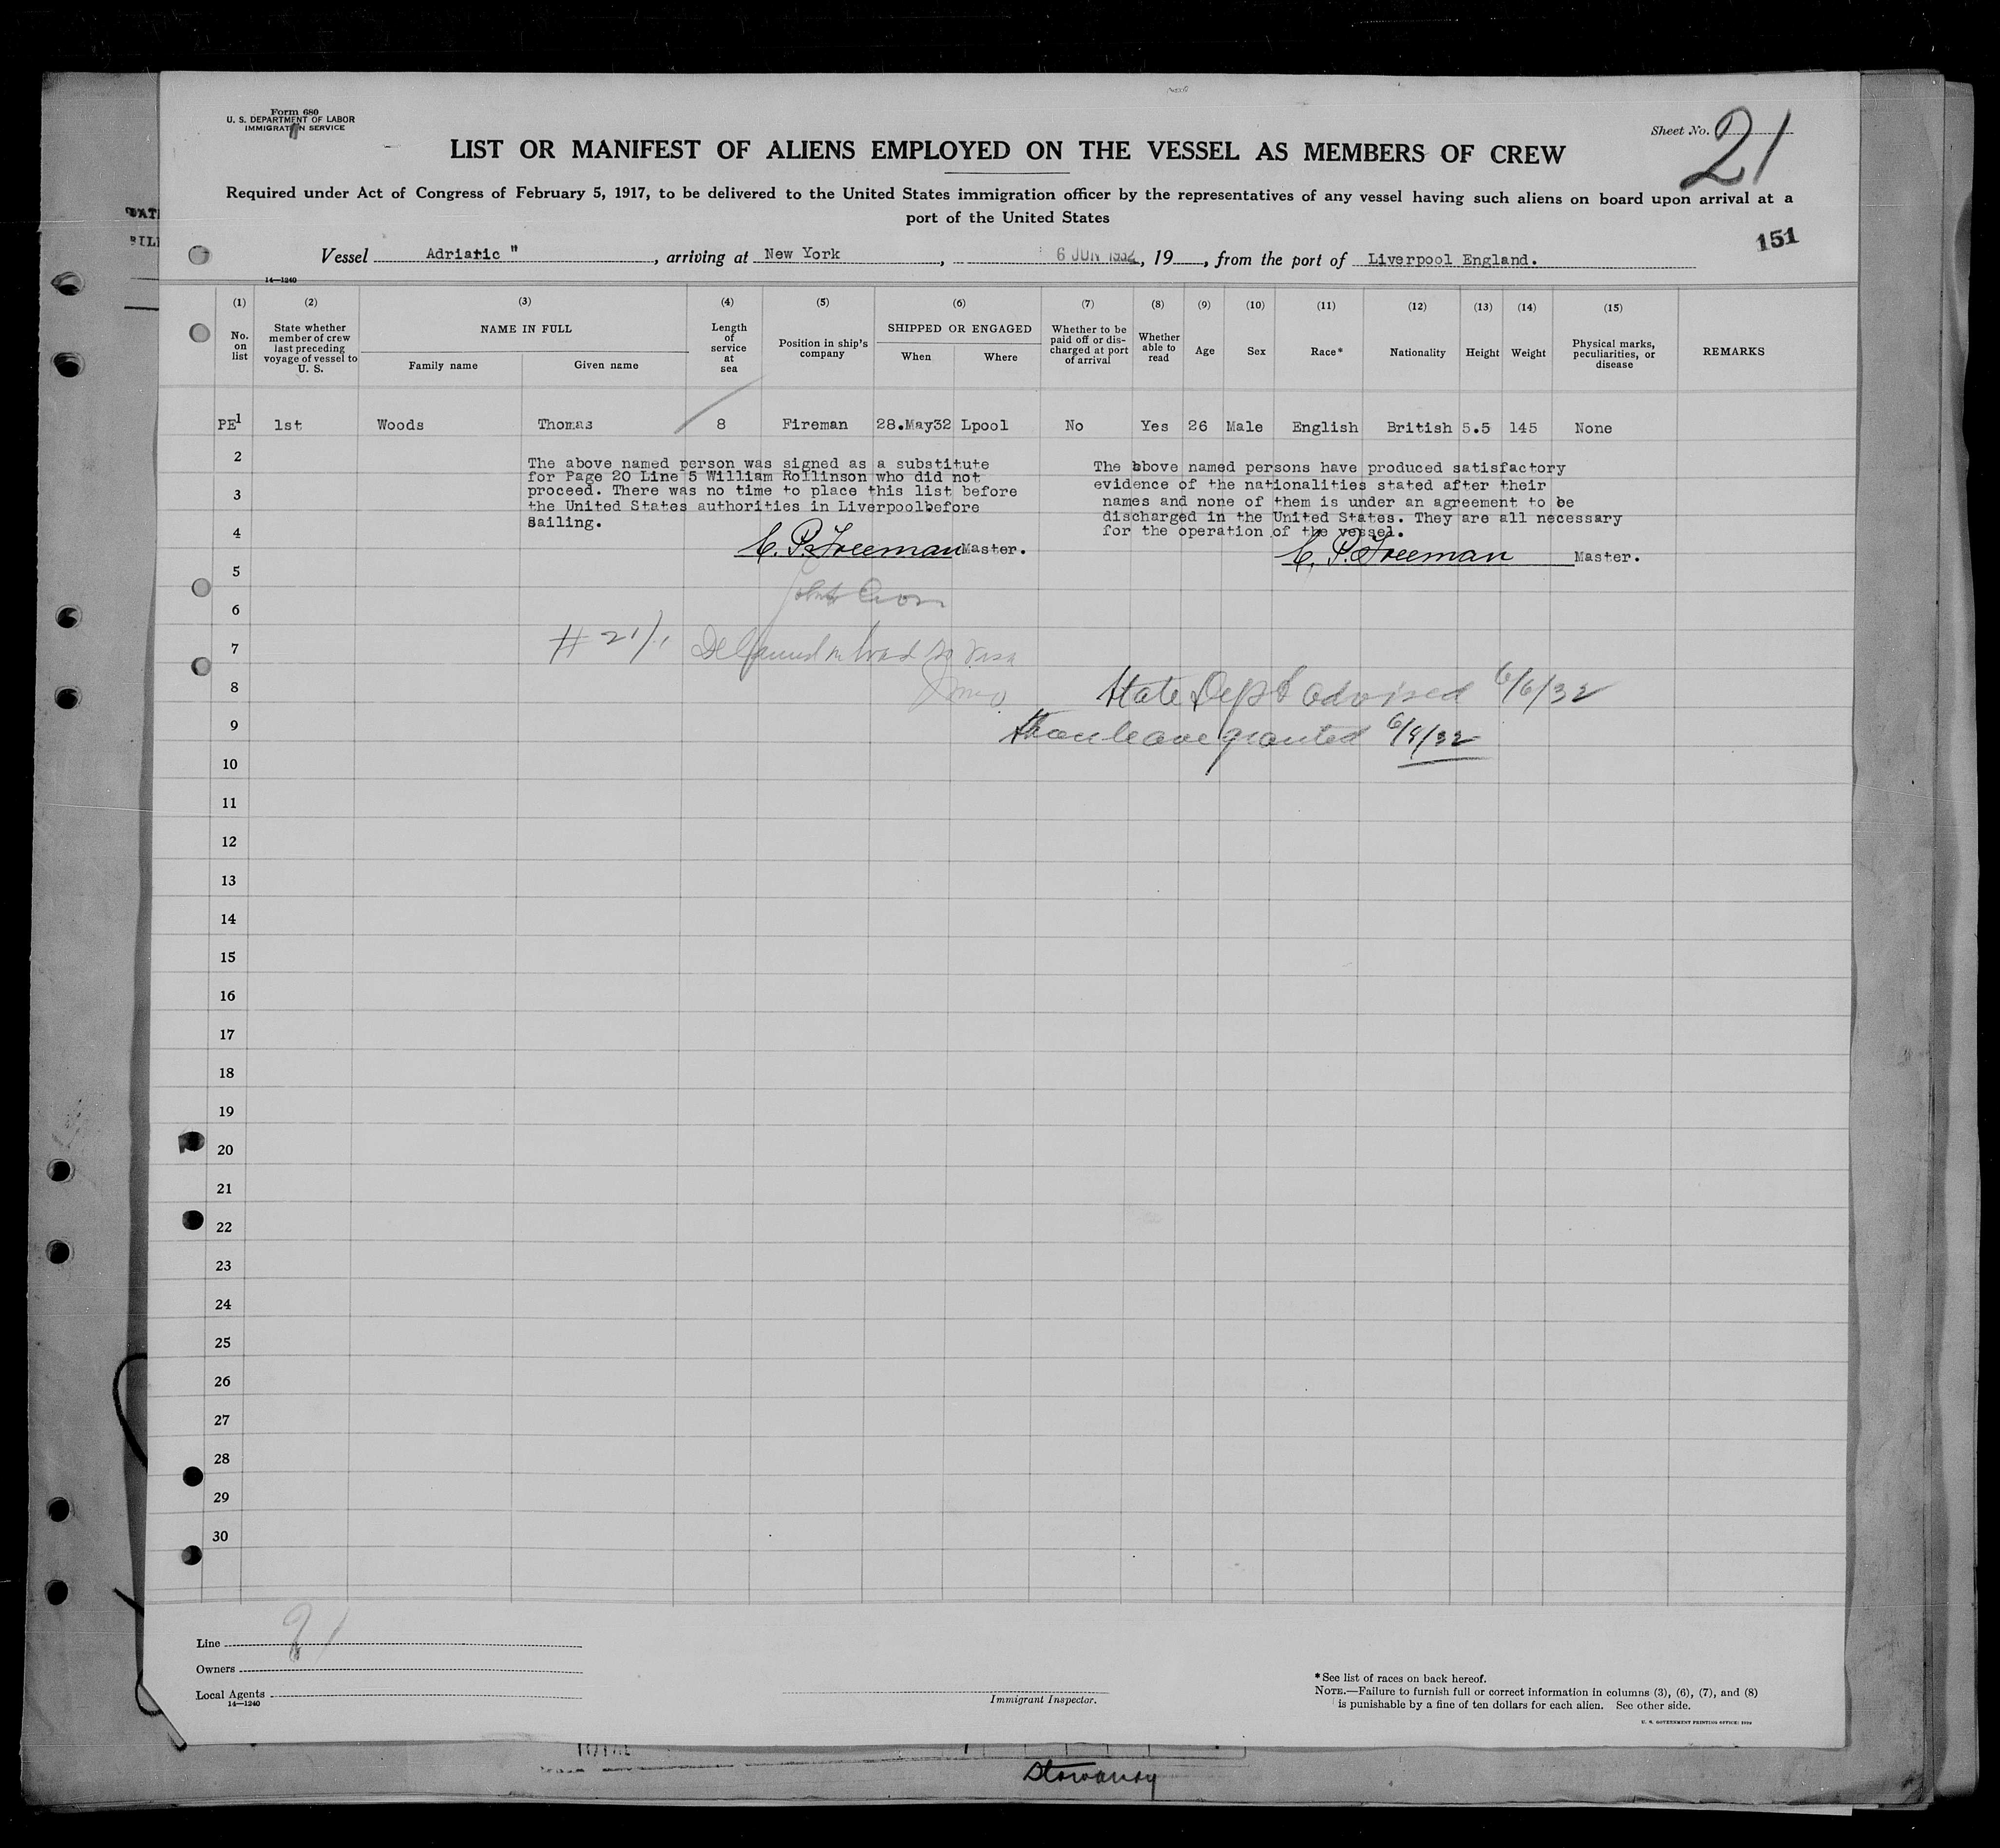 Form 680
U. S. DEPARTMENT OF LABOR
IMMIGRATION SERVICE
Sheet No. 21
LIST OR MANIFEST OF ALIENS EMPLOYED ON THE VESSEL AS MEMBERS OF CREW
Required under Act of Congress of February 5, 1917, to be delivered to the United States immigration officer by the representatives of any vessel having such aliens on board upon arrival at a
port of the United States
151
Vessel Adriatic " , arriving at New York , 6 JUN 1932, 19 , from the port of Liverpool England.
14—1240
(1) (2) (3) (4) (5) (6) (7) (8) (9) (10) (11) (12) (13) (14) (15)
No. on list
State whether member of crew last preceding voyage of vessel to U. S.
NAME IN FULL
Family name
Given name
Length of service at sea
Position in ship's company
SHIPPED OR ENGAGED
When
Where
Whether to be paid off or discharged at port of arrival
Whether able to read
Age
Sex
Race*
Nationality
Height
Weight
Physical marks, peculiarities, or disease
REMARKS
PE 1 1st Woods Thomas 8 Fireman 28.May32 Lpool No Yes 26 Male English British 5.5 145 None
2
The above named person was signed as a substitute
for Page 20 Line 5 William Rollinson who did not
proceed. There was no time to place this list before
the United States authorities in Liverpoolbefore
Sailing.
C. P. Freeman Master.
The above named persons have produced satisfactory
evidence of the nationalities stated after their
names and none of them is under an agreement to be
discharged in the United States. They are all necessary
for the operation of the vessel.
C. P. Freeman Master.
3
4
5
6
7
# 21/1
8
State Dept advised 6/6/32
9
Shore leave granted 6/8/32
10
11
12
13
14
15
16
17
18
19
20
21
22
23
24
25
26
27
28
29
30
21
Line
Owners
Local Agents
14—1240
Immigrant Inspector.
*See list of races on back hereof.
NOTE.—Failure to furnish full or correct information in columns (3), (6), (7), and (8)
is punishable by a fine of ten dollars for each alien. See other side.
TOTAL
Stowaway